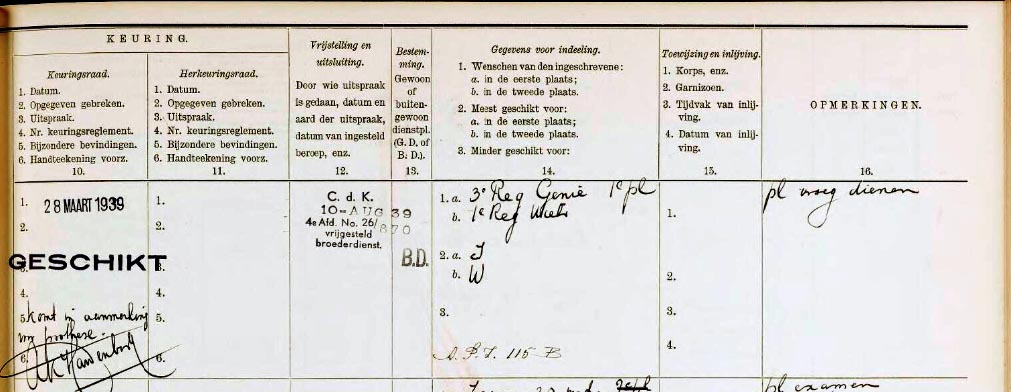 KEURING.
Keuringsraad.
1. Datum.
2. Opgegeven gebreken.
3. Uitspraak.
4. Nr. keuringsreglement.
5. Bijzondere bevindingen.
6. Handteekening voorz.
10.
Herkeuringsraad.
1. Datum.
2. Opgegeven gebreken.
3. Uitspraak.
4. Nr. keuringsreglement.
5. Bijzondere bevindingen.
6. Handteekening voorz.
11.
Vrijstelling en
uitsluiting.
Door wie uitspraak
is gedaan, datum en
aard der uitspraak,
datum van ingesteld
beroep, enz.
12.
Bestem-
ming.
Gewoon
of
buiten-
gewoon
dienstpl.
(G. D. of
B. D.).
13.
Gegevens voor indeeling.
1. Wenschen van den ingeschrevene:
a. in de eerste plaats;
b. in de tweede plaats.
2. Meest geschikt voor:
a. in de eerste plaats;
b. in de tweede plaats.
3. Minder geschikt voor:
14.
Toewijzing en inlijving.
1. Korps, enz.
2. Garnizoen.
3. Tijdvak van inlij-
ving.
4. Datum van inlij-
ving.
15.
OPMERKINGEN.
16.
1. 28 MAART 1939
2.
GESCHIKT
4.
5. komt in aanmerking
voor prothese.
6.
1.
2.
3.
4.
5.
6.
C. d. K.
10-AUG 39
4e Afd. No. 26/870
vrijgesteld
broederdienst.
B.D.
1. a. 3e Reg Genie 1e pl
b. 1e Reg
2. a. J
b. W
3.
115 B
1.
2.
3.
4.
pl vroeg dienen
pl examen